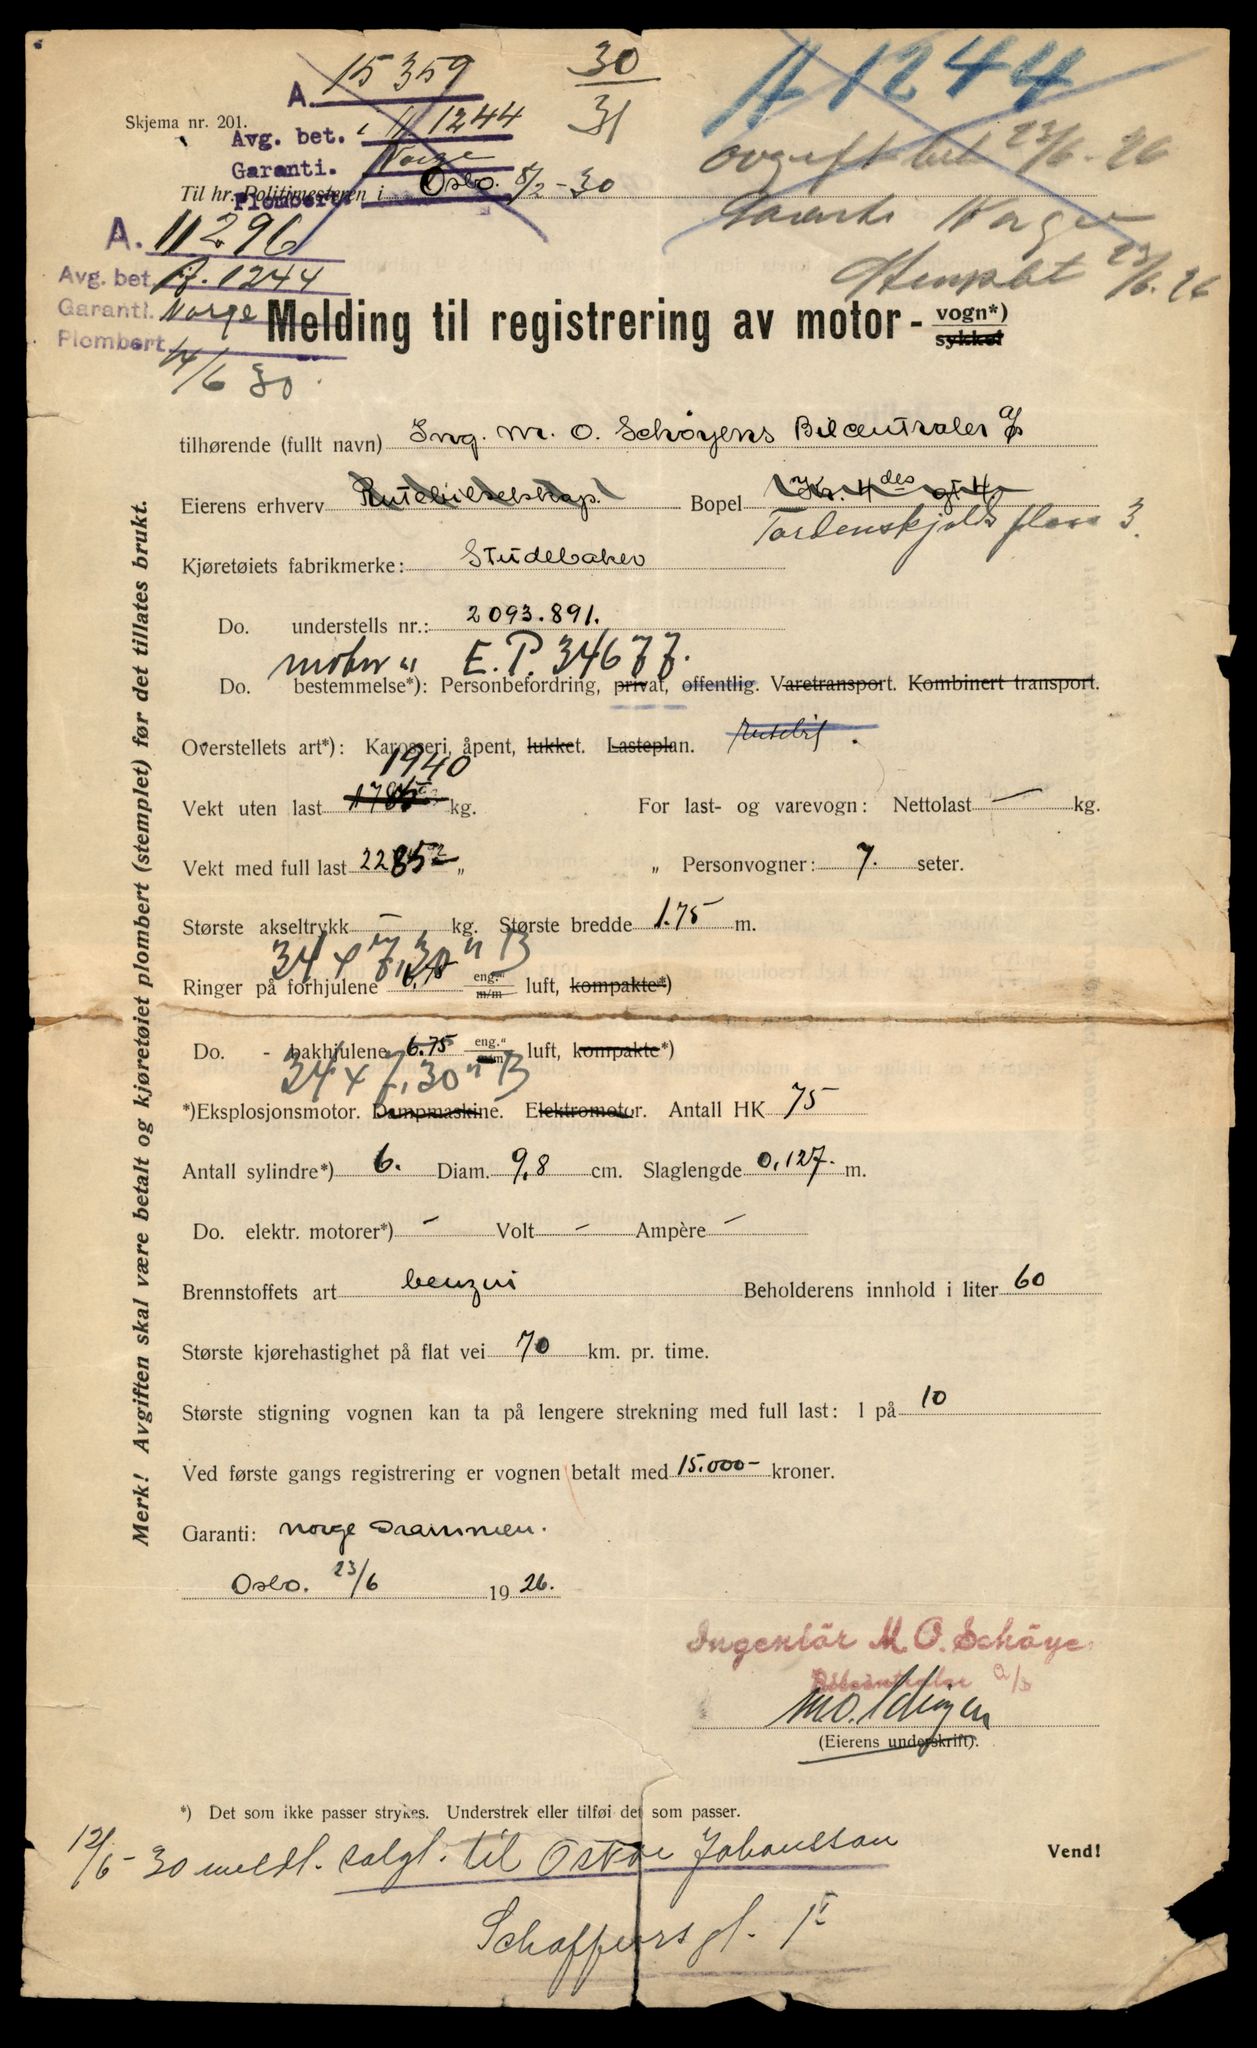 A. 15359
30
31
A 1244
Skjema nr. 201.
Avg. bet. A 1244
avgift bet 23/6-26
Garanti. Norge
Til hr. Politimesteren i Oslo. 8/2-30
Plombert
Garanti Norge
A. 11296
Stemplet 23/6.26
Avg. bet. A. 1244
Garanti. Norge
Melding til registrering av motor - vogn*)
sykkel
Plombert
14/6 30.
tilhørende (fullt navn) Ing. M. O. Schøyens Bilcentraler A/S
Eierens erhverv Rutebilselskap. Bopel Kr. 4des gt 4
Tordenskjolds plass 3.
Kjøretøiets fabrikmerke: Studebaker
Do. understells nr.: 2093.891.
motor " E.P. 34677.
Do. bestemmelse*): Personbefordring, privat, offentlig. Varetransport. Kombinert transport.
Overstellets art*): Karosseri, åpent, lukket. Lasteplan. Rutebil.
1940
Vekt uten last 1785 kg. For last- og varevogn: Nettolast — kg.
Vekt med full last 2285 „ „ Personvogner: 7. seter.
Største akseltrykk — kg. Største bredde 1.75 m.
34 x 7,30" B
Ringer på forhjulene 6.75 eng."
m/m luft, kompakte*)
Do. - bakhjulene 6.75 eng."
m/m luft, kompakte*)
34 x 7,30" B
*)Eksplosjonsmotor. Dampmaskine. Elektromotor. Antall HK 75
Antall sylindre*) 6. Diam. 9,8 cm. Slaglengde 0,127. m.
Do. elektr. motorer*) — Volt — Ampère —
Brennstoffets art benzin Beholderens innhold i liter 60
Største kjørehastighet på flat vei 70 km. pr. time.
Største stigning vognen kan ta på lengere strekning med full last: 1 på 10
Ved første gangs registrering er vognen betalt med 15.000- kroner.
Garanti: Norge Drammen.
Oslo. 23/6 1926.
Ingeniør M. O. Schøye
Bilcentraler A/S
M.O. Schøyen
(Eierens underskrift).
*) Det som ikke passer strykes. Understrek eller tilføi det som passer.
Vend!
12/6-30 meldt. solgt. til Oskar Johansson
Schaffersgt. 1 I
Merk! Avgiften skal være betalt og kjøretøiet plombert (stemplet) før det tillates brukt.